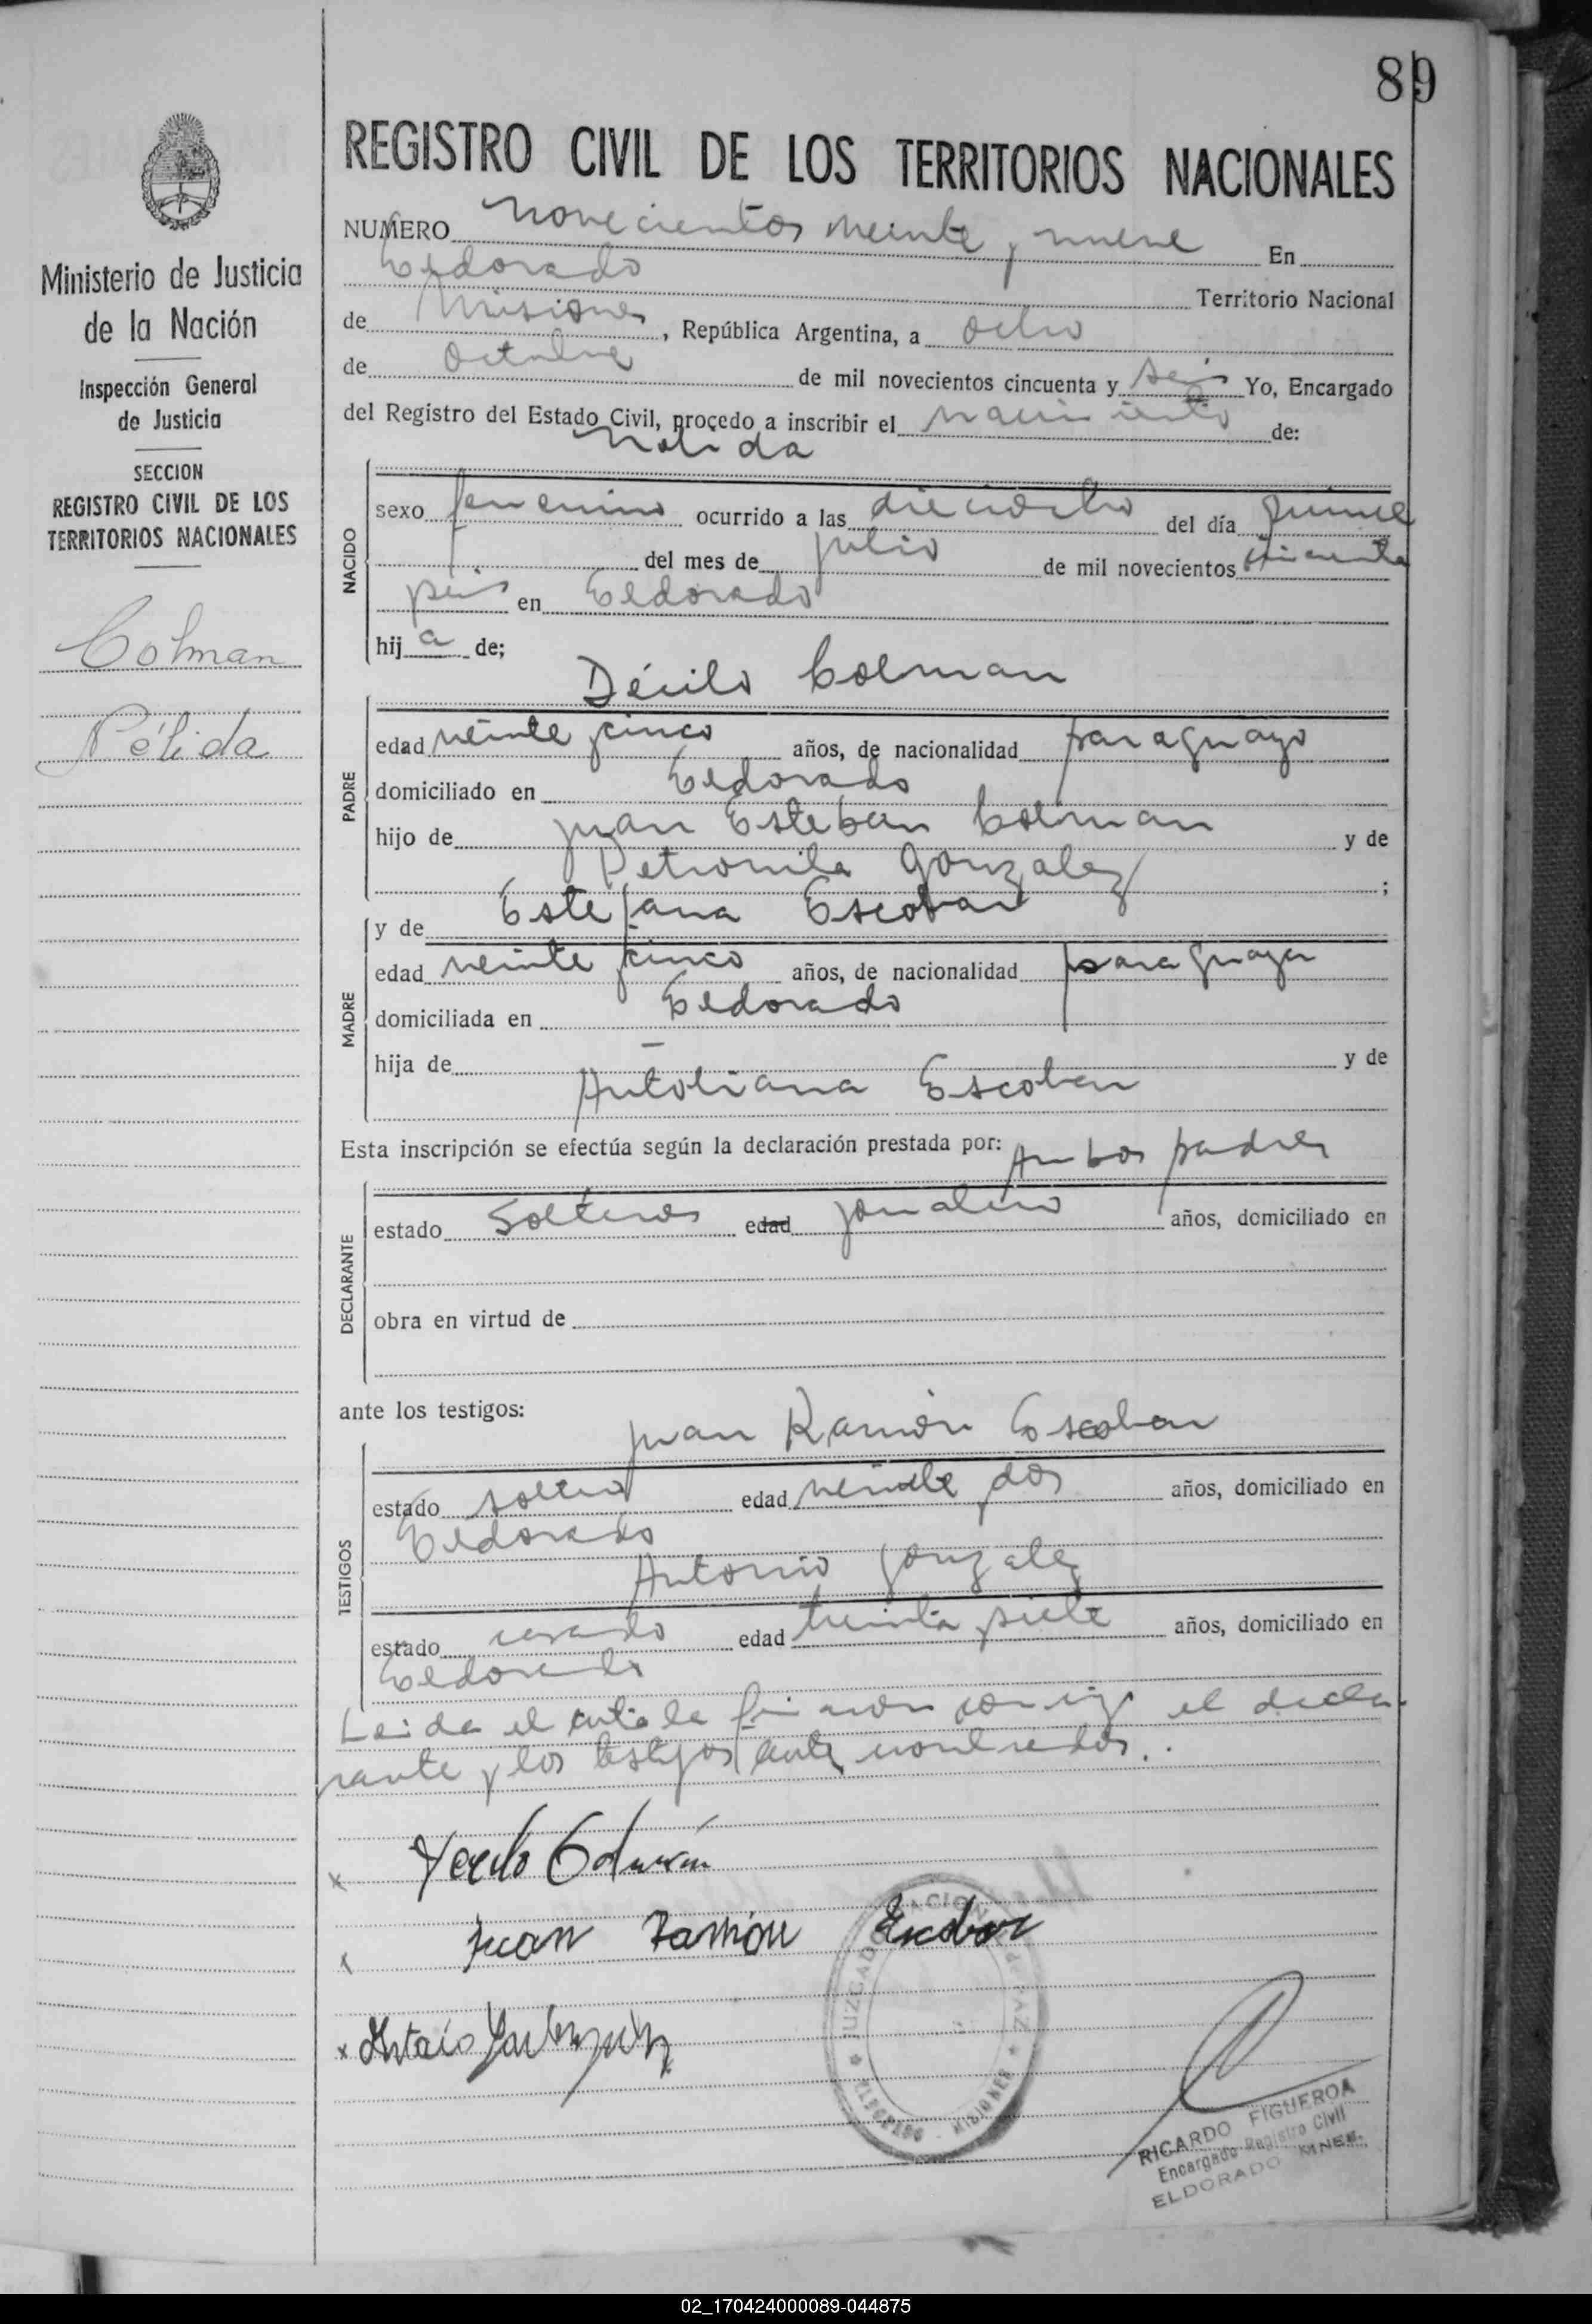 89
REGISTRO CIVIL DE LOS TERRITORIOS NACIONALES
Ministerio de Justicia
de la Nación
Inspección General
de Justicia
SECCION
REGISTRO CIVIL DE LOS
TERRITORIOS NACIONALES
Colman
Nélida
NUMERO novecientos veinte y nueve En
Eldorado Territorio Nacional
de Misiones, República Argentina, a ocho
de Octubre de mil novecientos cincuenta y seis Yo, Encargado
del Registro del Estado Civil, procedo a inscribir el nacimiento de:
Nelida
NACIDO
sexo femenino ocurrido a las dieciocho del día quince
del mes de julio de mil novecientos cincuenta
y seis en Eldorado
hij a de;
Décilo Colman
PADRE
edad veinte y cinco años, de nacionalidad paraguayo
domiciliado en Eldorado
hijo de Juan Esteban Colman y de
Petronila Gonzalez ;
y de Estefana Escobar
MADRE
edad veinte y cinco años, de nacionalidad paraguaya
domiciliada en Eldorado
hija de — y de
Antoliana Escobar
Esta inscripción se efectúa según la declaración prestada por: Ambos padres
DECLARANTE
estado Solteros edad jornalero años, domiciliado en
obra en virtud de
ante los testigos:
Juan Ramón Escobar
TESTIGOS
estado soltero edad veinte y dos años, domiciliado en
Eldorado
Antonio Gonzalez
estado casado edad treinta y siete años, domiciliado en
Eldorado
Leida el acta la firmaron conmigo el decla-
rante y los testigos ante nombrados.
x Colmán
x Juan Ramón Escobar
x
JUZGADO NACIONAL DE PAZ
ELDORADO - MISIONES
RICARDO FIGUEROA
Encargado Registro Civil
ELDORADO MNES.
02_170424000089-044875